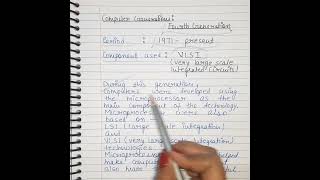 Computer Generations:
Fourth Generation
Period : 1971 - present
Component used: VLSI
(very large scale
Integrated Circuit)
During this generation,
Computers were developed using
the microprocessor as their
main component of the technology.
Microprocessors
based on
LSI (large scale Integration) and
VLSI (very large scale Integration)
technologies.
Microprocessors helped
make
also